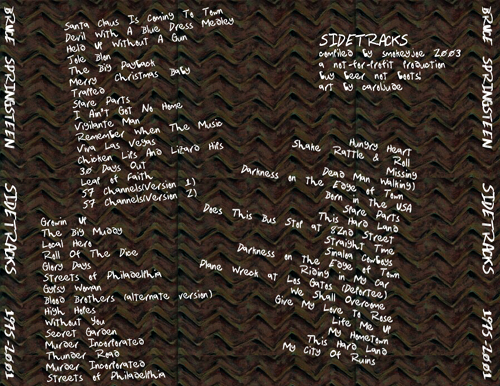 BRUCE SPRINGSTEEN
SIDETRACKS
1975-2001
Santa Claus Is Coming To Town
Devil With A Blue Dress Medley
Held Up Without A Gun
Jole Blon
The Big Payback
Merry Christmas Baby
Trapped
Spare Parts
I Ain't Got No Home
Vigilante Man
Remember When The Music
Viva Las Vegas
Chicken Lips And Lizard Hips
30 Days Out
Leap of Faith
57 Channels(Version 1)
57 Channels(Version 2)
Growin Up
The Big Muddy
Local Hero
Roll Of The Dice
Glory Days
Streets of Philadelphia
Gypsy Woman
Blood Brothers (alternate version)
High Hopes
Without You
Secret Garden
Murder Incorporated
Thunder Road
Murder Incorporated
Streets of Philadelphia
SIDETRACKS
compiled by smokeyjoe 2003
a not-for-profit production
buy beer not boots!
art by caroljude
Hungry Heart
Shake Rattle & Roll
Missing
Dead Man Walking)
Darkness on The Edge of Town
Born in The USA
Spare Parts
This Hard Land
Does This Bus Stop at 82nd Street
Straight Time
Sinaloa Cowboys
Darkness on The Edge of Town
Riding in My Car
Plane Wreck at Los Gates (Deportee)
We Shall Overcome
Give My Love To Rose
Life Me Up
My Hometown
This Hard Land
My City Of Ruins
BRUCE SPRINGSTEEN
SIDETRACKS
1975-2001